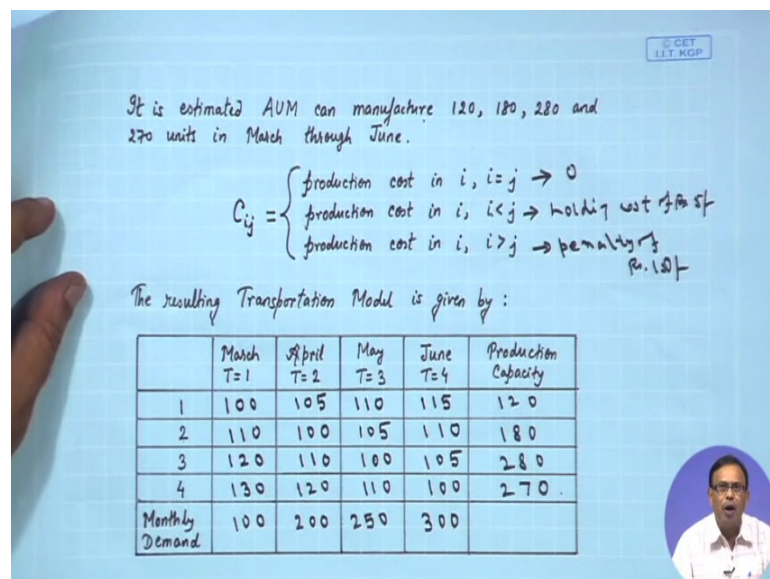 © CET
I.I.T. KGP
It is estimated AUM can manufacture 120, 180, 280 and
270 units in March through June.
Cij = { production cost in i, i=j → 0
production cost in i, i<j → holding cost of Rs 5/-
production cost in i, i>j → penalty of
Rs. 10/-
The resulting Transportation Model is given by :
March T=1 April T=2 May T=3 June T=4 Production Capacity
1 100 105 110 115 120
2 110 100 105 110 180
3 120 110 100 105 280
4 130 120 110 100 270.
Monthly Demand 100 200 250 300